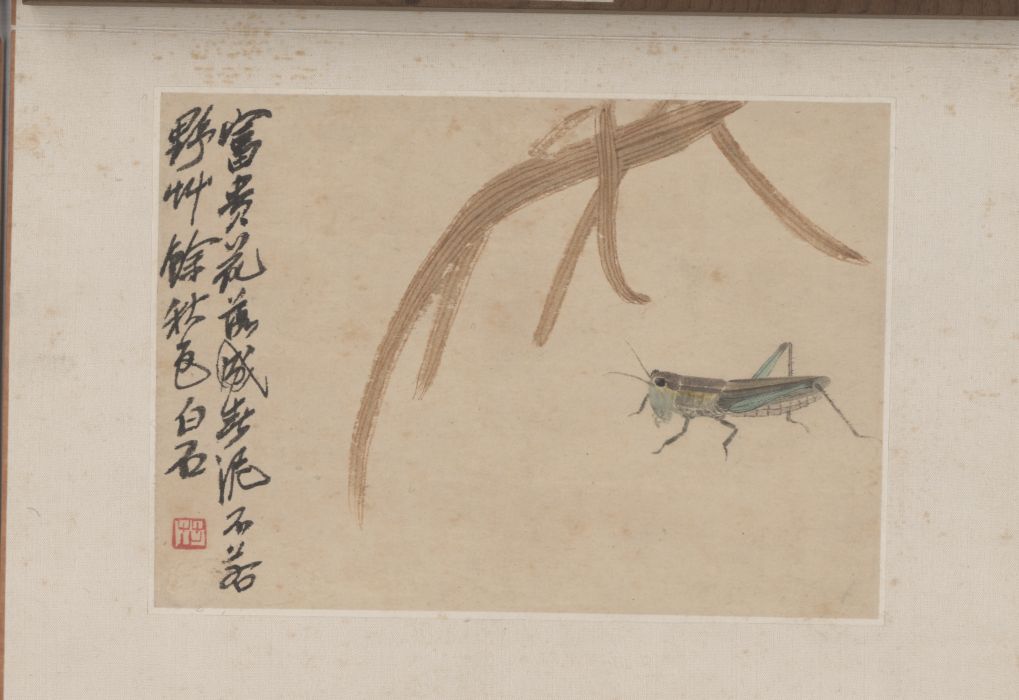 富貴花落成春泥不若
野艸餘秋色白石